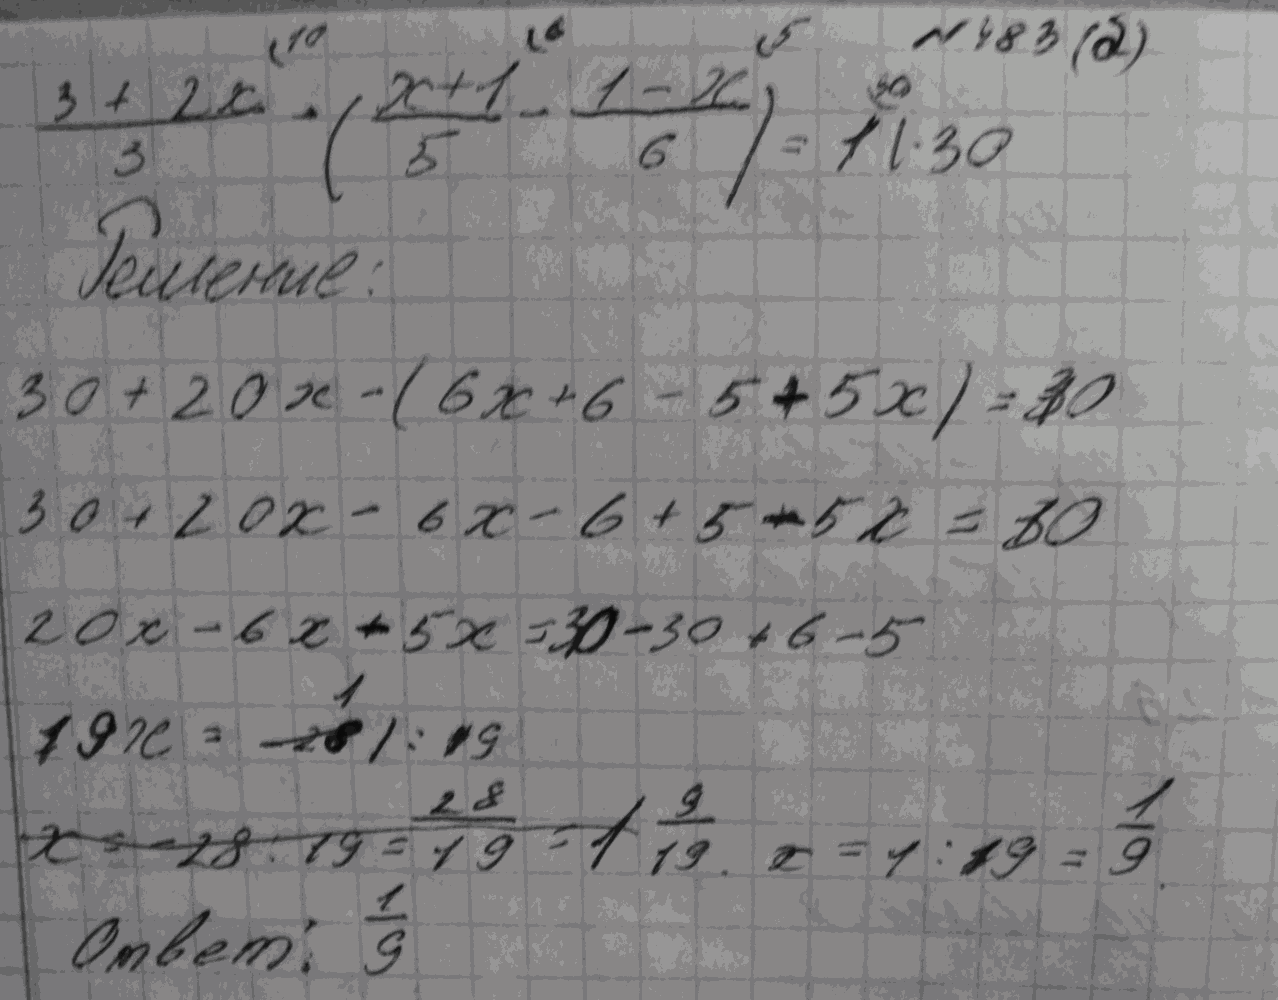 № 483 (б)
3 + 2x/3 - (x+1/5 - 1-x/6) = 1 |·30
Решение:
30 + 20x - (6x + 6 - 5 + 5x) = 30
30 + 20x - 6x - 6 + 5 - 5x = 30
20x - 6x - 5x = 30 - 30 + 6 - 5
19x = 1 | : 19
x = -28 : 19 = 28/19 = 1 9/19. x = 1 : 19 = 1/9.
Ответ: 1/9